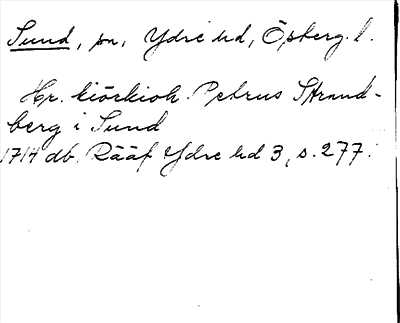 Sund, sn, Ydre hd, Öpberg. l.
Hr. kiörkioh. Petrus Strand-
berg i Sund
1714 db. Rääf Ydre hd 3, s. 277.